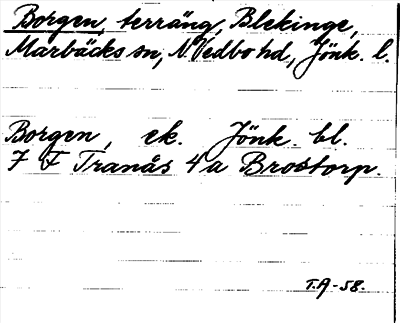 Borgen, terräng, Blekinge,
Marbäcks sn, N. Vedbo hd., Jönk. l.
Borgen, ek. Jönk. bl.
7 F Tranås 4 a Brostorp.
T.A-58.